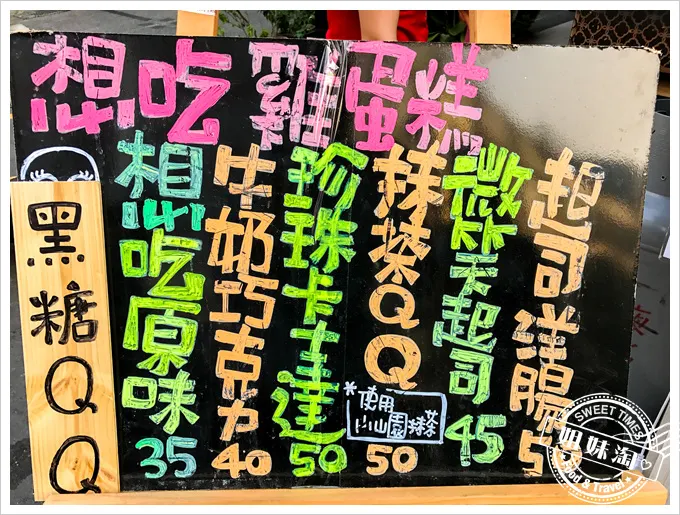 想吃雞蛋糕
黑糖QQ
想吃原味35
牛奶巧克力40
珍珠卡士達50
抹茶QQ
*使用
小山園抹茶
50
微笑起司45
起司洋腸
SWEET TIMES
姐妹淘
Food & Travel